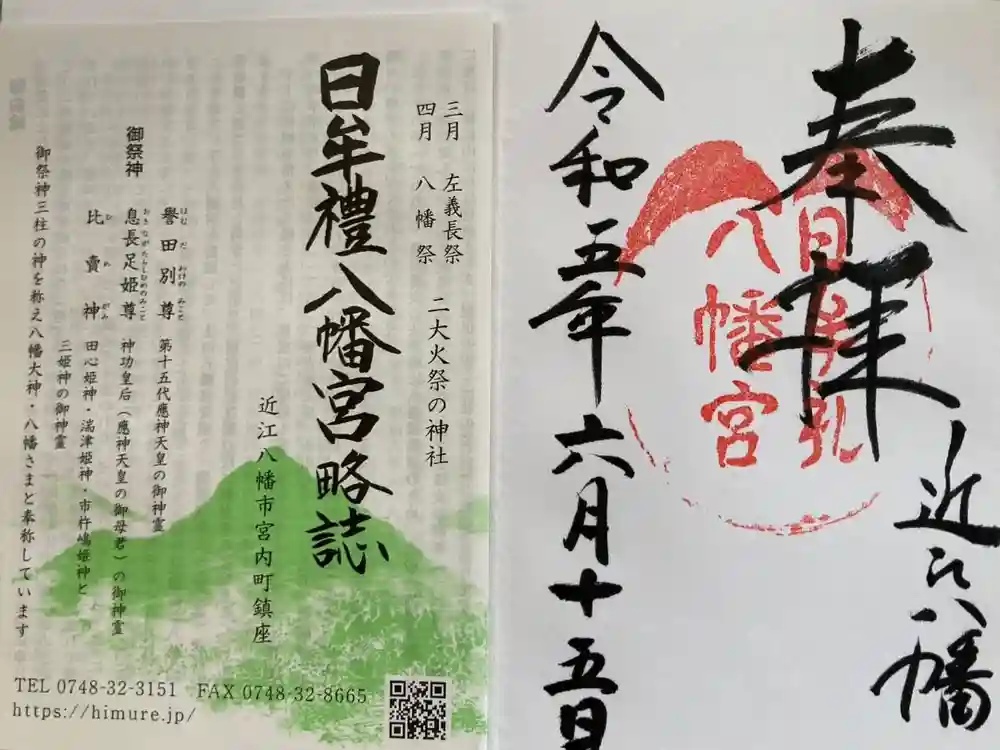 三月 左義長祭
四月 八幡祭
二大火祭の神社
日牟禮八幡宮略誌
近江八幡市宮内町鎮座
御祭神
譽田別尊 第十五代應神天皇の御神霊
ほむだわけのみこと
息長足姫尊 神功皇后(應神天皇の御母君)の御神霊
おきながたらしひめのみこと
比賣神 田心姫神・湍津姫神・市杵嶋姫神と
ひめがみ
三姫神の御神霊
御祭神三柱の神を称え八幡大神・八幡さまと奉称しています
TEL 0748-32-3151 FAX 0748-32-8665
https://himure.jp/
奉拝
近江八幡
日牟礼
八幡宮
令和五年六月十五日